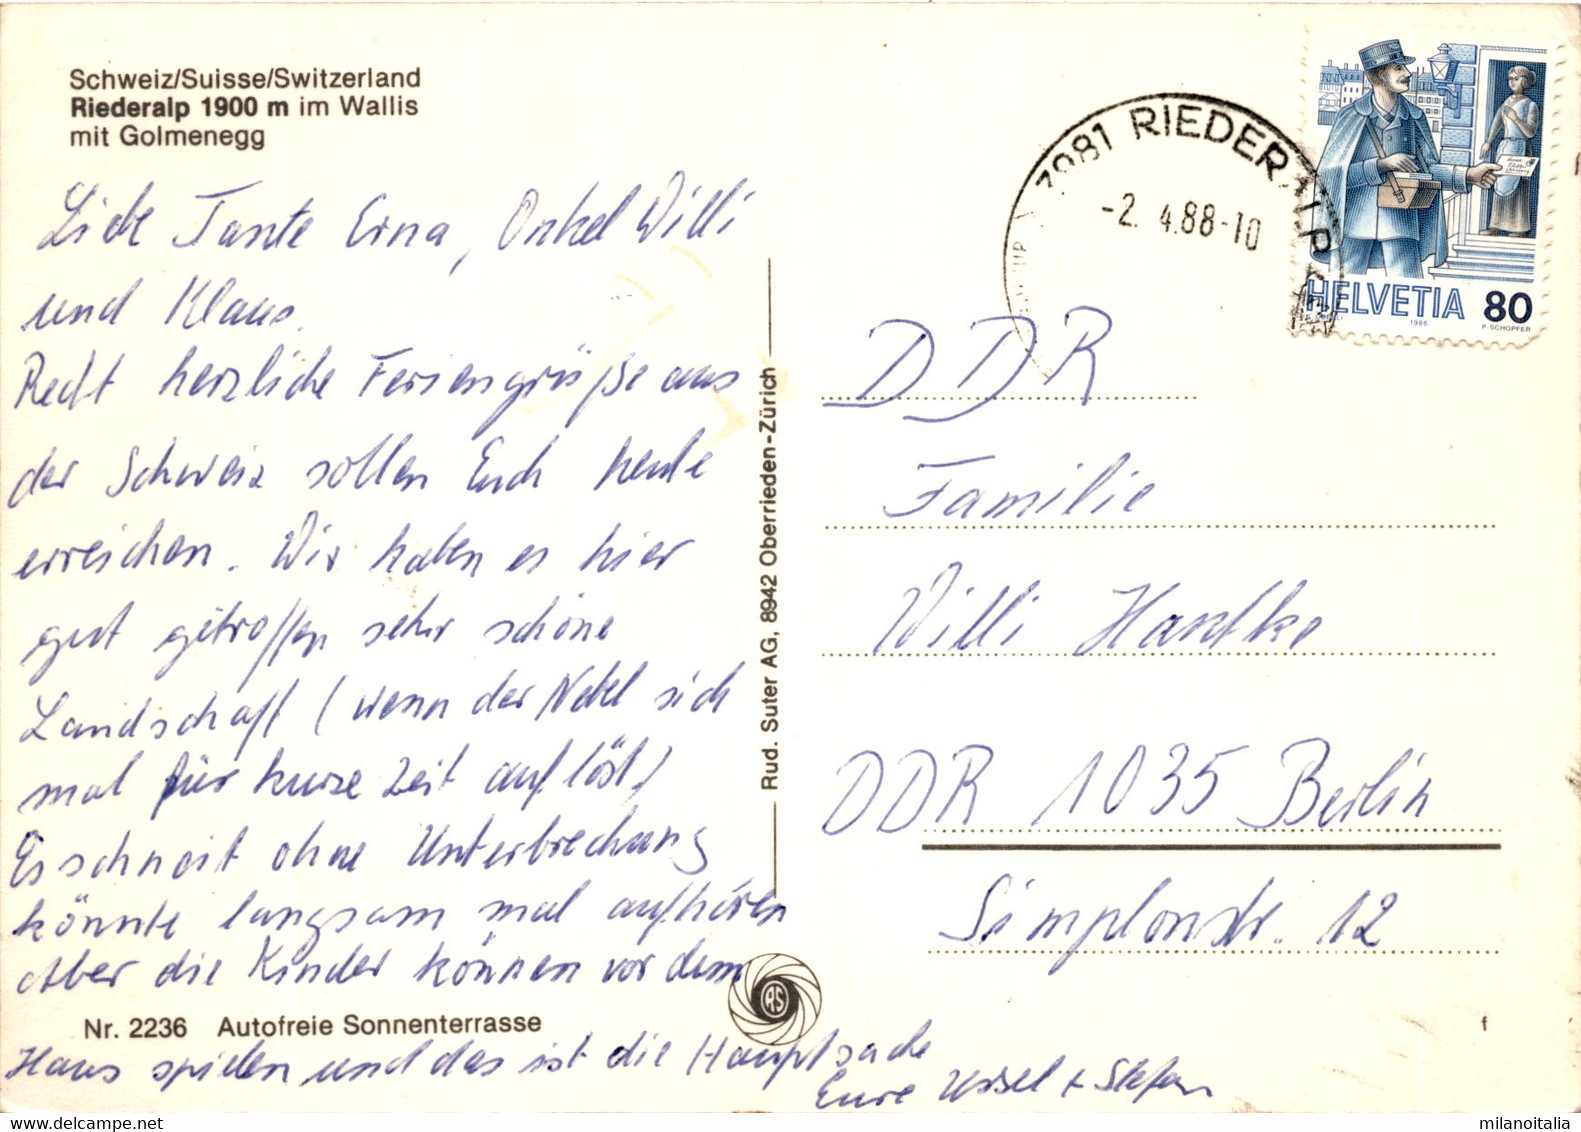 Schweiz/Suisse/Switzerland
Riederalp 1900 m im Wallis
mit Golmenegg
Liebe Tante Erna, Onkel Willi
und Klaus.
Recht herzliche Feriengrüße aus
der Schweiz sollen Euch heute
erreichen. Wir haben es hier
gut getroffen sehr schöne
Landschaft (wenn der Nebel sich
mal für kurze Zeit auflöst)
Es schneit ohne Unterbrechung
könnte langsam mal aufhören
Aber die Kinder können vor dem
Nr. 2236 Autofreie Sonnenterrasse
Haus spielen und das ist die Hauptsache
Eure Ursel + Stefan
Rud. Suter AG, 8942 Oberrieden-Zürich
RS
7981 RIEDERALP
-2. 4.88-10
HELVETIA 80
1986
P. SCHOPFER
DDR
Familie
Willi Handke
DDR 1035 Berlin
Simplonstr. 12
f
milanoitalia